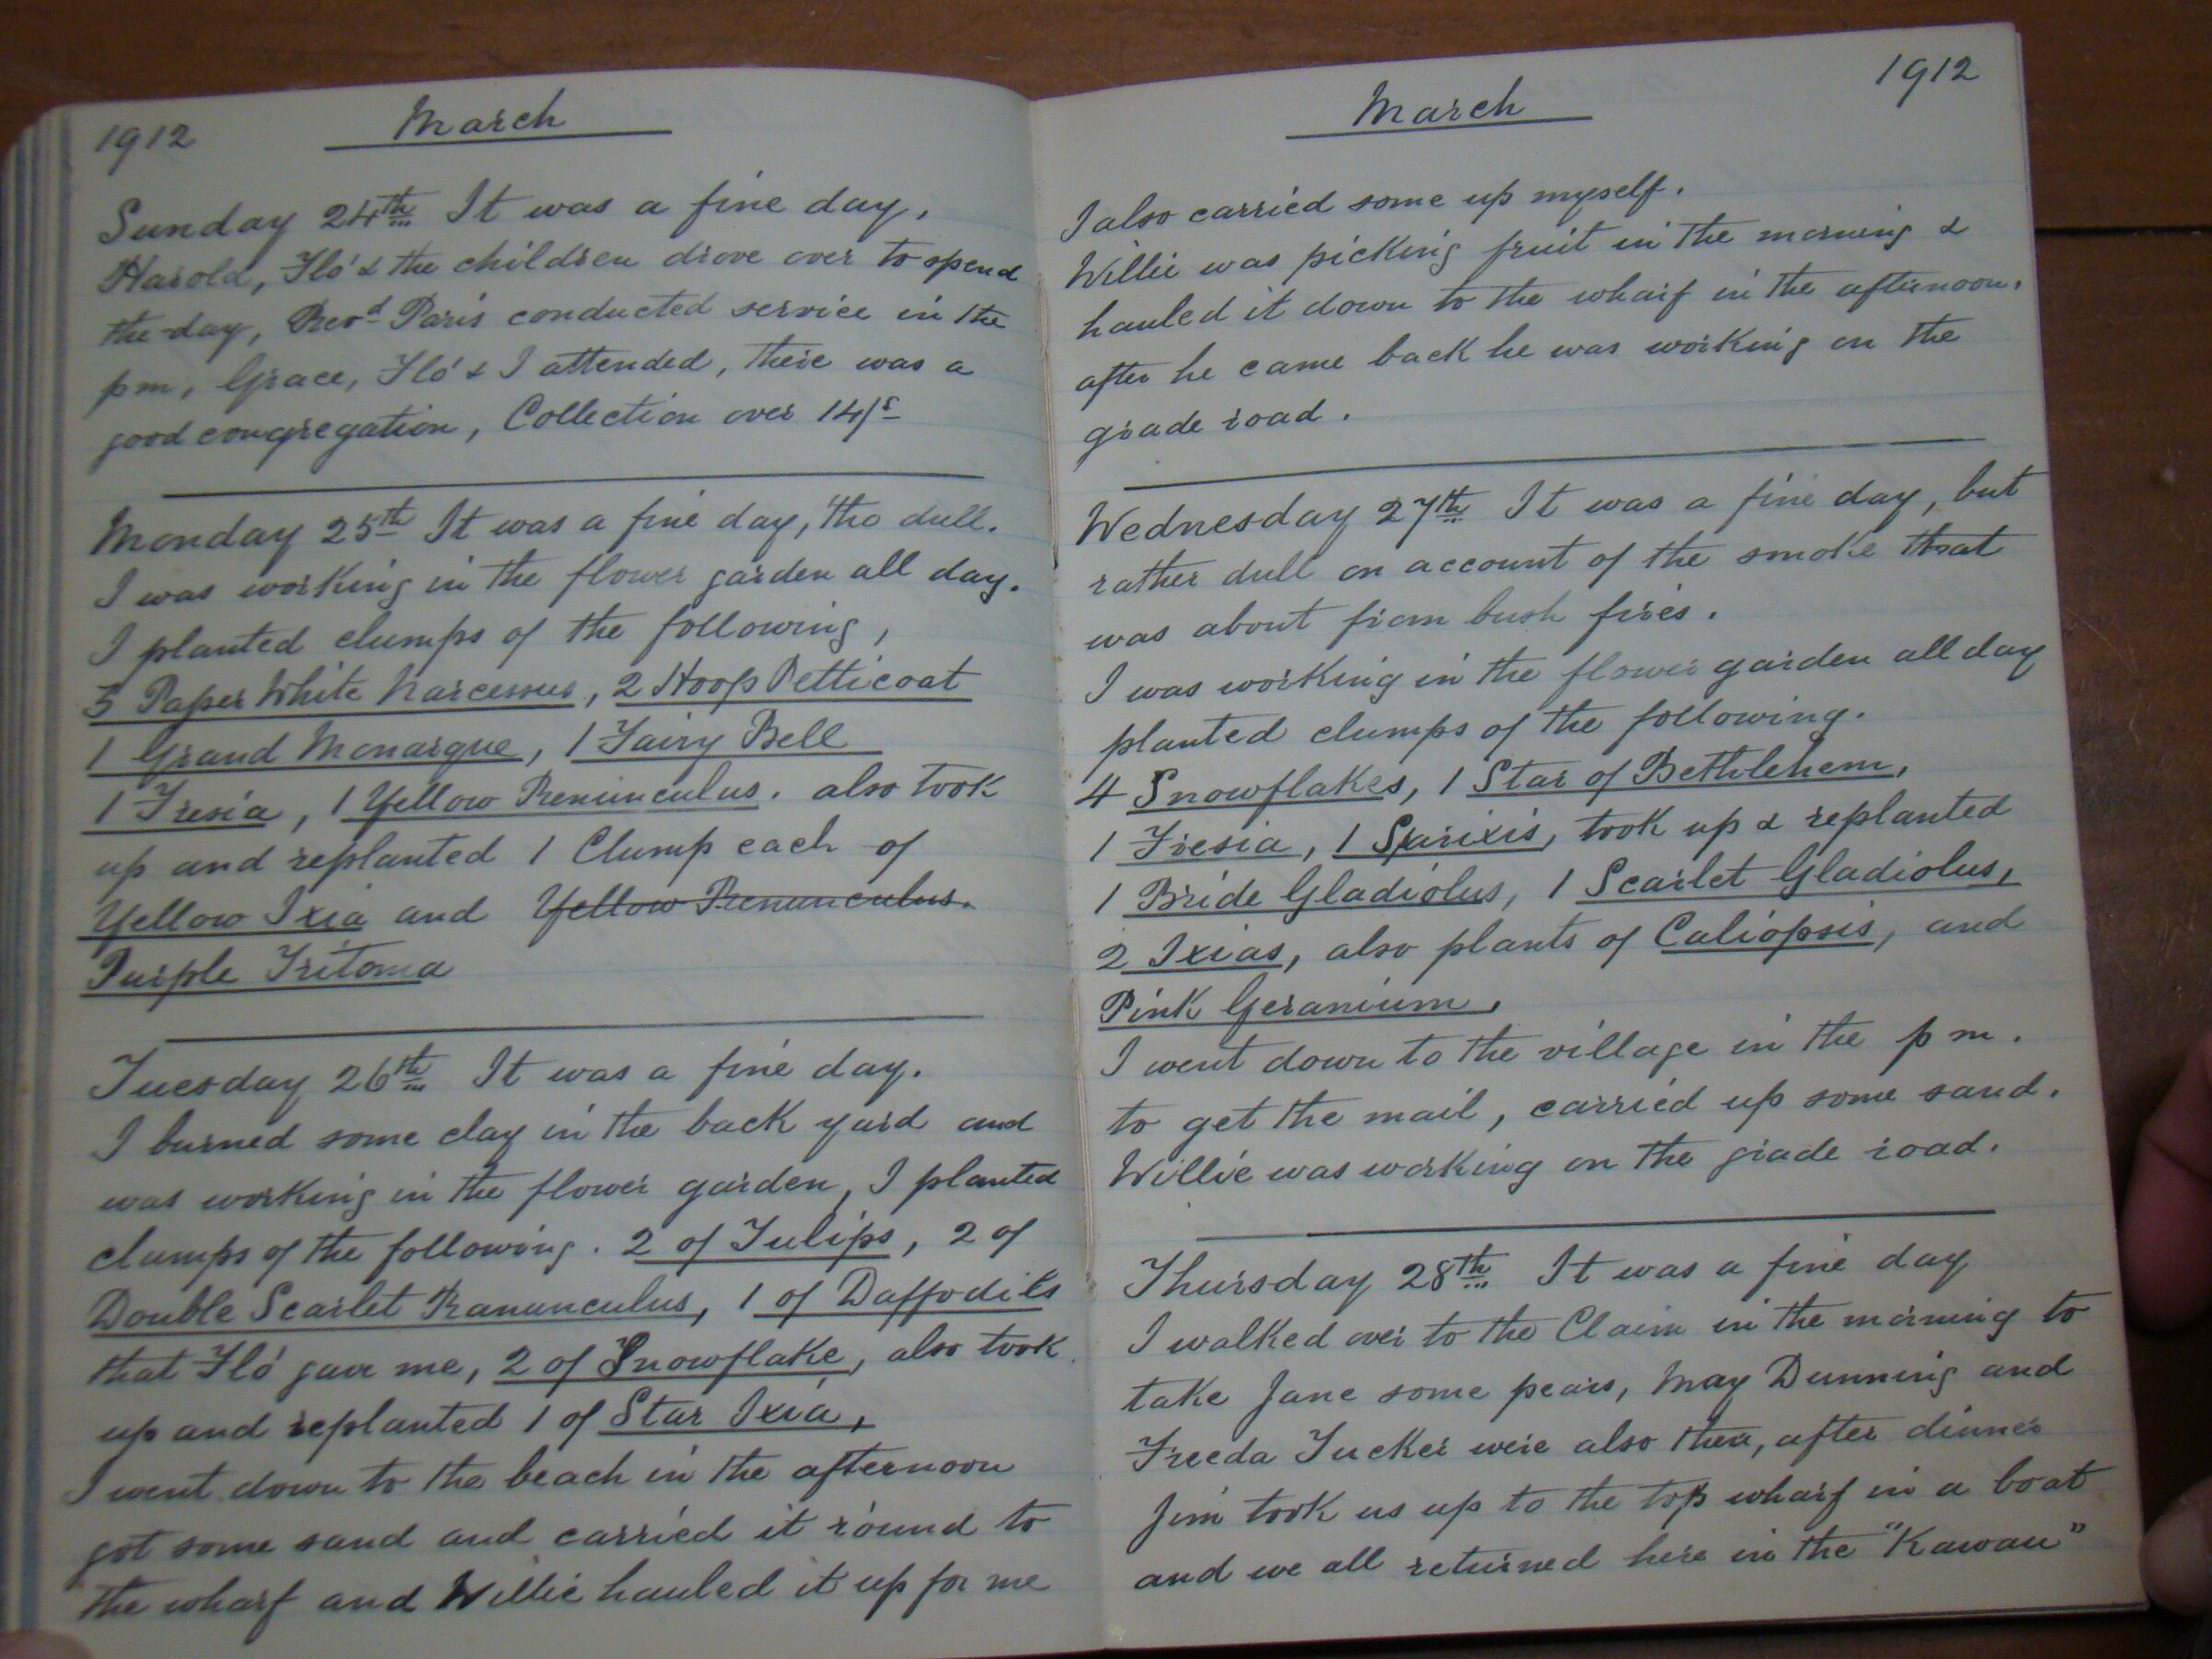 1912 March
Sunday 24th It was a fine day,
Harold, Flo' & the children drove over to spend
the day, Revd Paris conducted service in the
pm, Grace, Flo' & I attended, there was a
good congregation, Collection over 14/s
Monday 25th It was a fine day, 'tho dull.
I was working in the flower garden all day.
I planted clumps of the following,
3 Paper White Narcessus, 2 Hoop Petticoat
1 Grand Monarque, 1 Fairy Bell
1 Fresia, 1 Yellow Renunculus. also took
up and replanted 1 Clump each of
Yellow Ixia and Yellow Renunculus.
Purple Tritoma
Tuesday 26th It was a fine day.
I burned some clay in the back yard and
was working in the flower garden, I planted
clumps of the following. 2 of Tulips, 2 of
Double Scarlet Rananculus, 1 of Daffodils
that Flo' gave me, 2 of Snowflake, also took
up and replanted 1 of Star Ixia,
I went down to the beach in the afternoon
got some sand and carried it round to
the wharf and Willie hauled it up for me
March 1912
I also carried some up myself.
Willie was picking fruit in the morning &
hauled it down to the wharf in the afternoon,
after he came back he was working on the
grade road.
Wednesday 27th It was a fine day, but
rather dull on account of the smoke that
was about from bush fires.
I was working in the flower garden all day
planted clumps of the following.
4 Snowflakes, 1 Star of Bethlehem,
1 Fresia, 1 Sparixis, took up & replanted
1 Bride Gladiolus, 1 Scarlet Gladiolus,
2 Ixias, also plants of Caliopsis, and
Pink Geranium.
I went down to the village in the pm.
to get the mail, carried up some sand.
Willie was working on the grade road.
Thursday 28th It was a fine day
I walked over to the Claim in the morning to
take Jane some pears, May Dunning and
Freeda Tucker were also there, after dinner
Jim took us up to the top wharf in a boat
and we all returned here in the "Kawau"